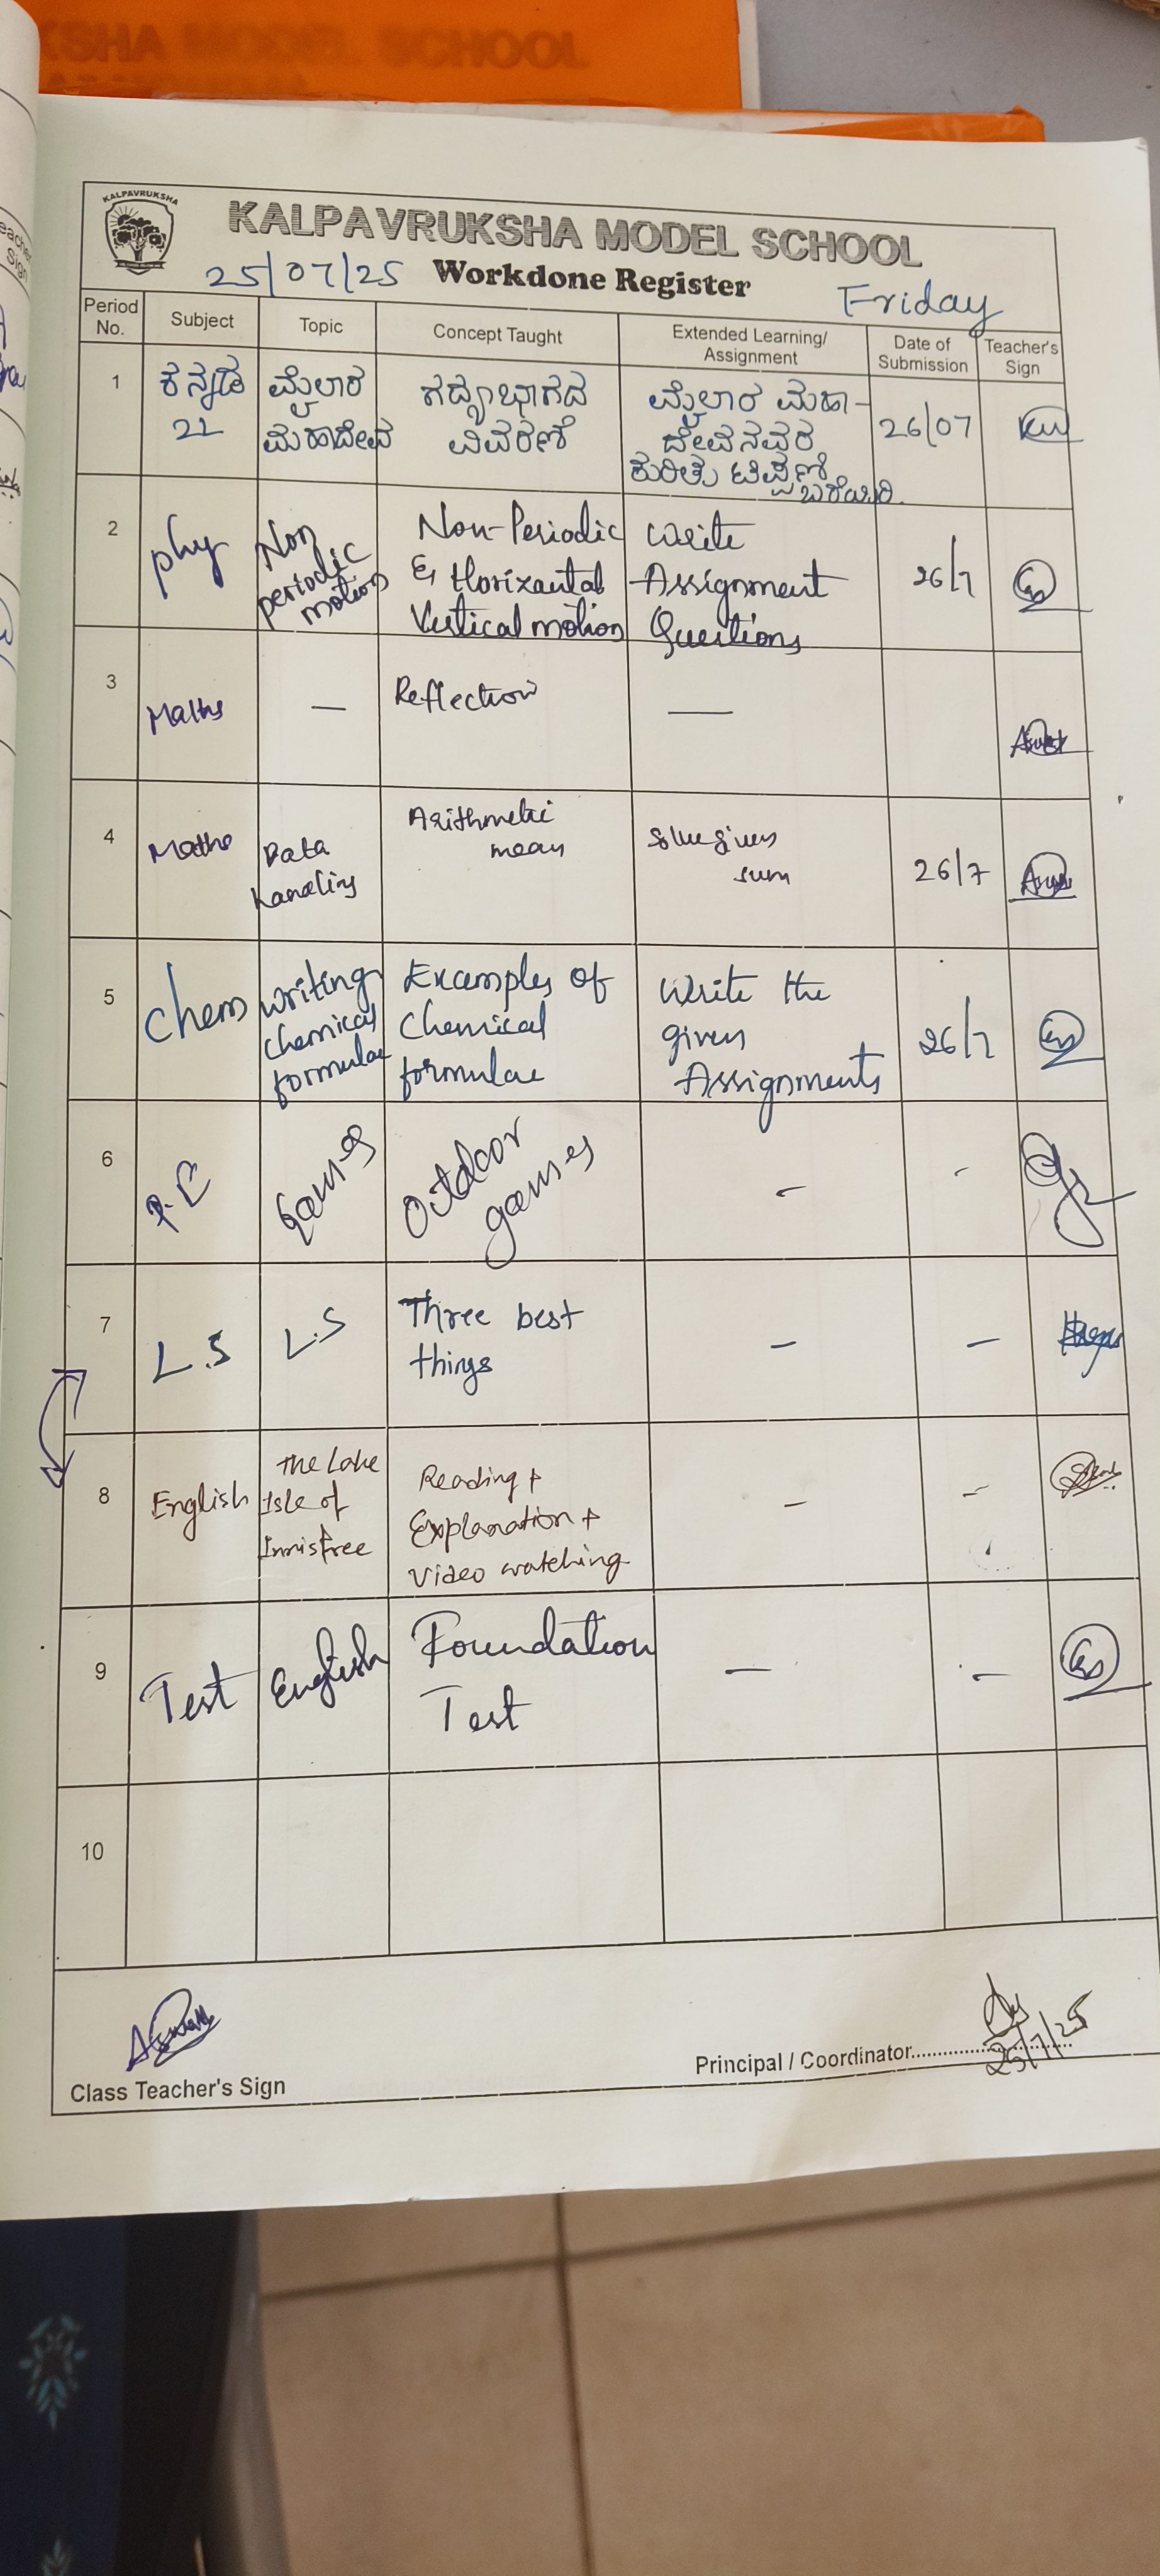 KSHA MODEL SCHOOL
KALPAVRUKSHA
KALPAVRUKSHA MODEL SCHOOL
25/07/25 Workdone Register Friday
Period No. Subject Topic Concept Taught Extended Learning/ Assignment Date of Submission Teacher's Sign
1 ಕನ್ನಡ 2L ಮೈಲಾರ ಮಹಾದೇವ ಗದ್ಯಭಾಗದ ವಿವರಣೆ ಮೈಲಾರ ಮಹಾ- ದೇವನವರ ಕುರಿತು ಟಿಪ್ಪಣಿ ಬರೆಯಿರಿ. 26/07
2 phy Non periodic motion Non-Periodic & Horizantal Vertical motion Write Assignment Questions 26/7
3 Maths — Reflection —
4 Maths Data handling Arithmetic mean Solve given sum 26/7
5 Chem writing chemical formulae Examples of Chemical formulae Write the given Assignments 26/7
6 P.E Games Outdoor games - -
7 L.S L.S Three best things - -
8 English The Lake Isle of Innisfree Reading + Explanation + Video watching - -
9 Test English Foundation Test - -
10
Class Teacher's Sign
Principal / Coordinator
25/7/25